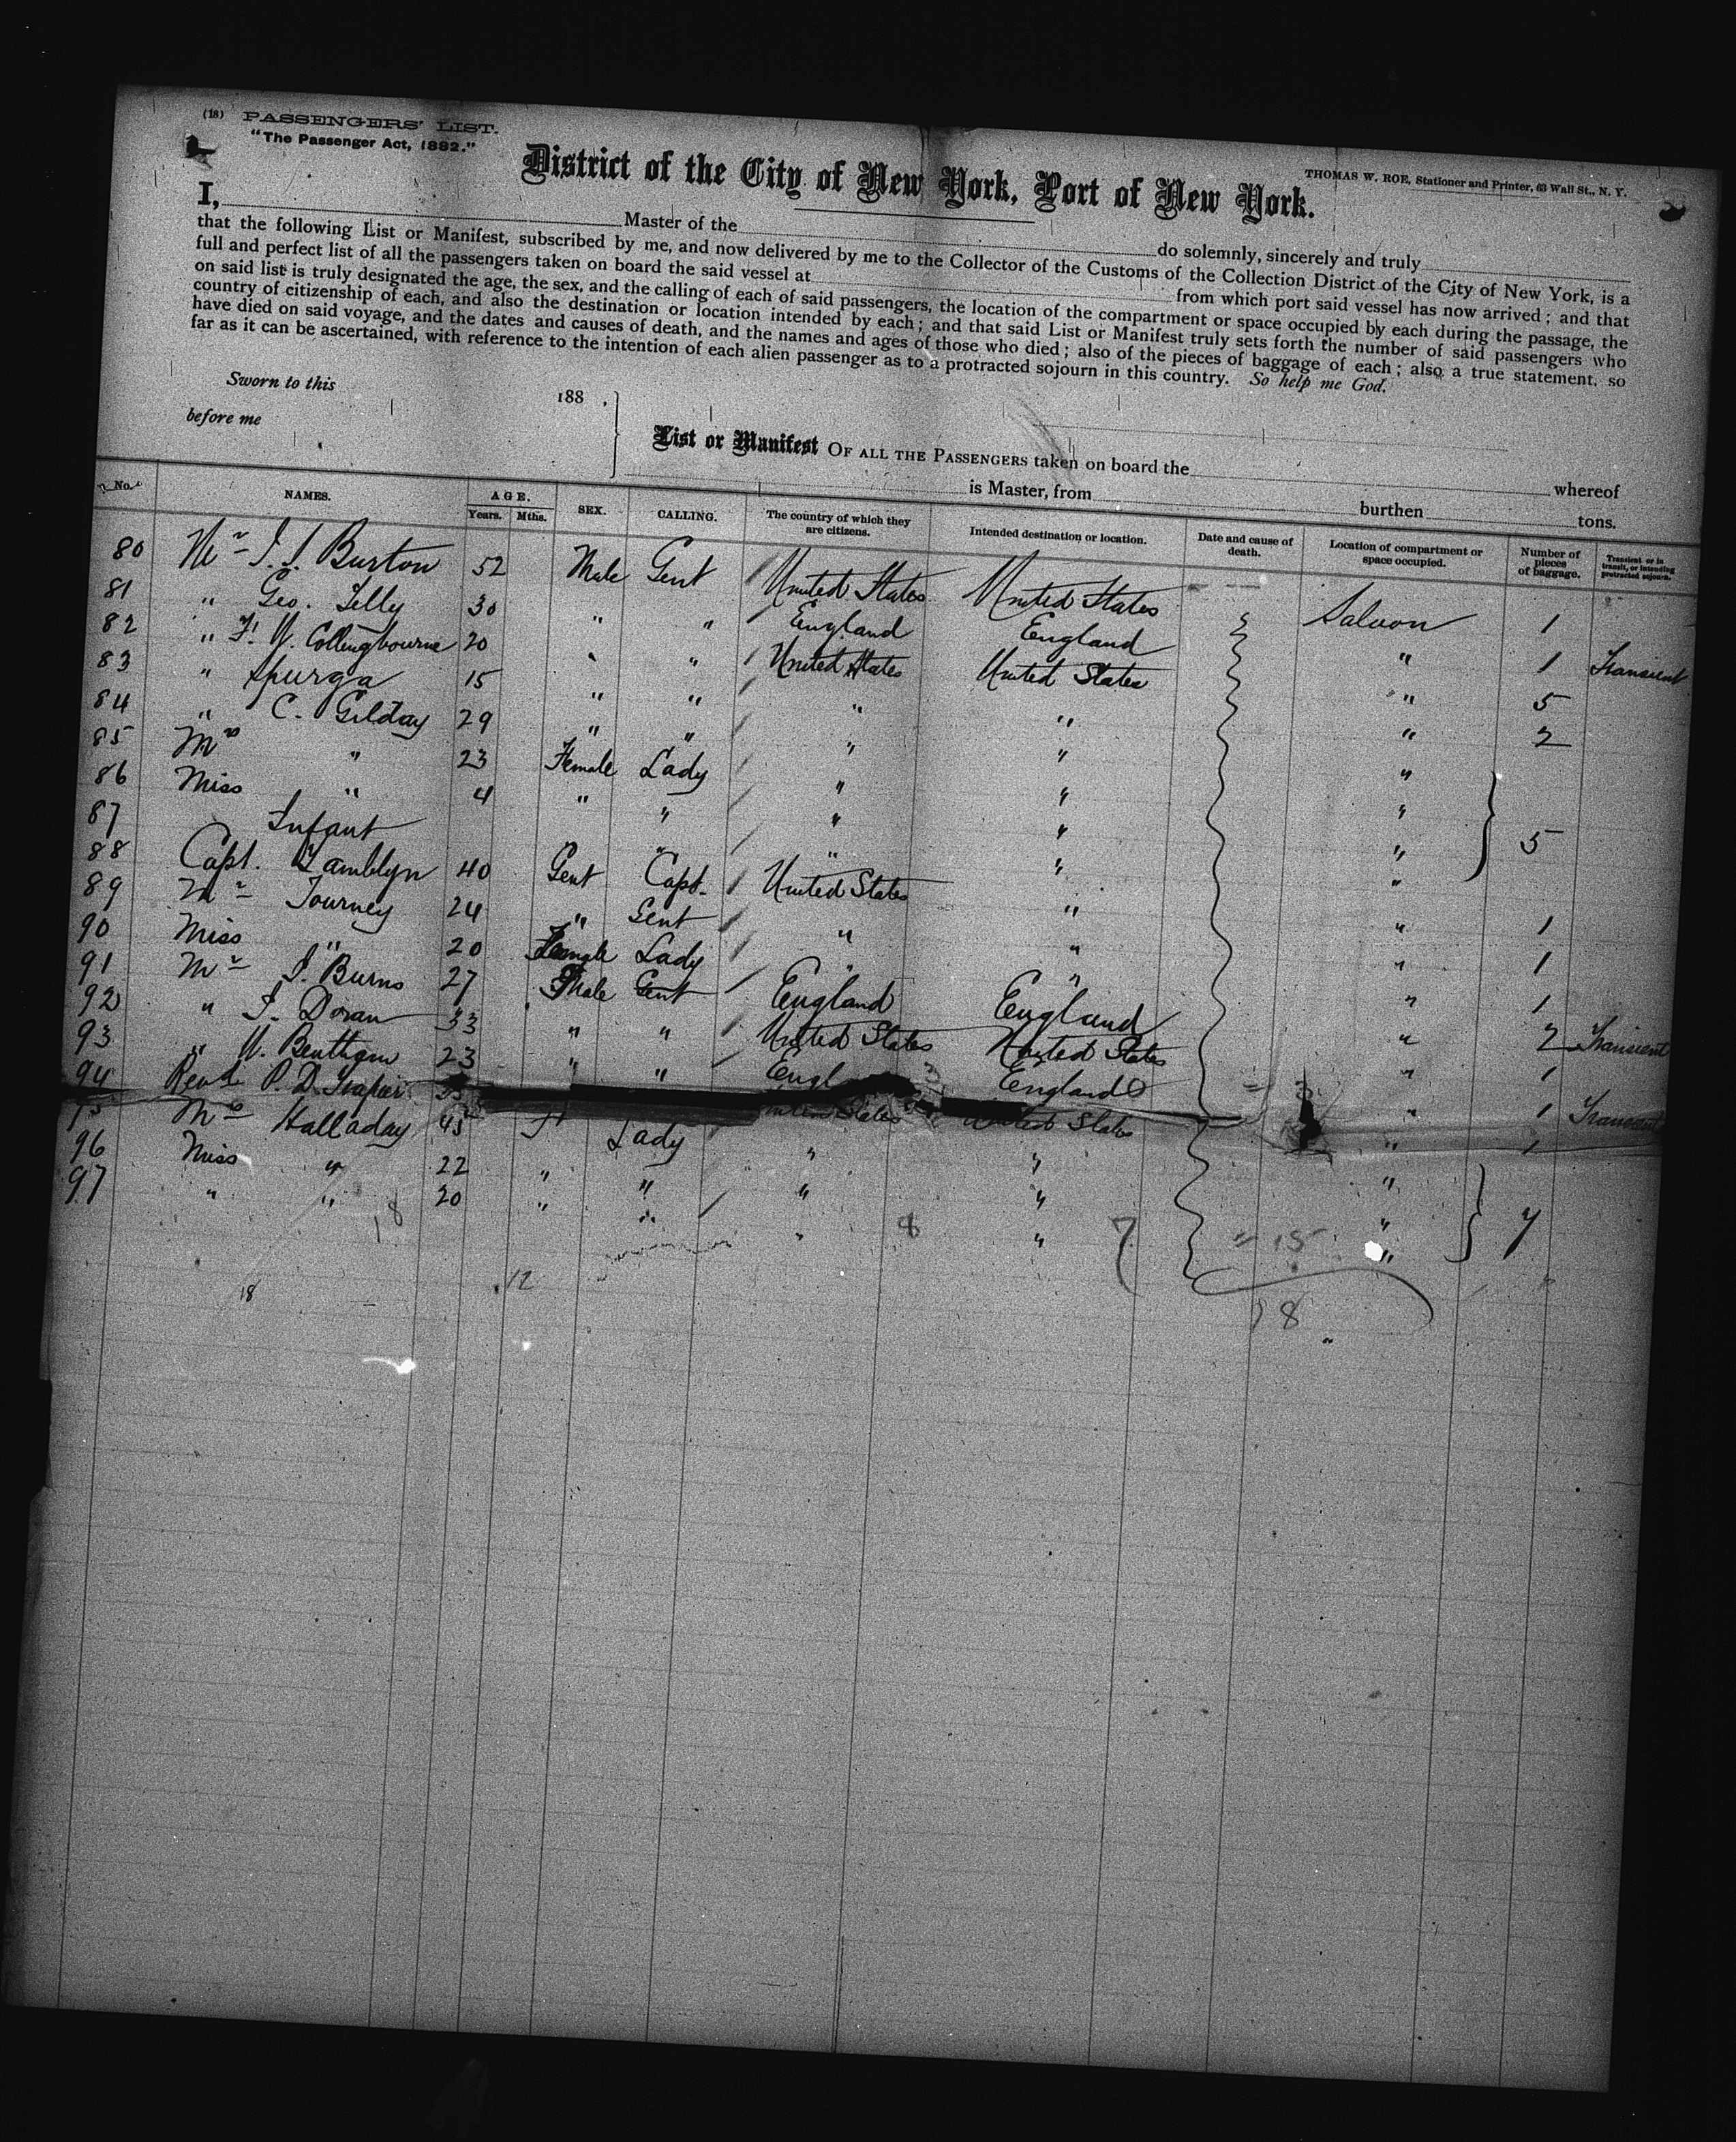 (18) PASSENGERS' LIST.
"The Passenger Act, 1882."
THOMAS W. ROE, Stationer and Printer, 63 Wall St., N. Y.
District of the City of New York, Port of New York.
I, Master of the do solemnly, sincerely and truly
that the following List or Manifest, subscribed by me, and now delivered by me to the Collector of the Customs of the Collection District of the City of New York, is a
full and perfect list of all the passengers taken on board the said vessel at from which port said vessel has now arrived; and that
on said list is truly designated the age, the sex, and the calling of each of said passengers, the location of the compartment or space occupied by each during the passage, the
country of citizenship of each, and also the destination or location intended by each; and that said List or Manifest truly sets forth the number of said passengers who
have died on said voyage, and the dates and causes of death, and the names and ages of those who died; also of the pieces of baggage of each; also a true statement, so
far as it can be ascertained, with reference to the intention of each alien passenger as to a protracted sojourn in this country. So help me God.
Sworn to this 188 .
before me
List or Manifest OF ALL THE PASSENGERS taken on board the whereof
is Master, from burthen tons.
No. NAMES. AGE. Years. Mths. SEX. CALLING. The country of which they are citizens. Intended destination or location. Date and cause of death. Location of compartment or space occupied. Number of pieces of baggage. Transient or in transit, or intending protracted sojourn.
80 Mr Burton 52 Male Gent United States United States Saloon 1
81 " Geo. 30 " " England England " 1 Transient
82 " F. W. Collingbourne 20 " " United States United States " 5
83 " Spurga 15 " " " " " 2
84 " C. Gilday 29 " " " " "
85 Mrs " 23 Female Lady " " "
86 Miss " 4 " " " " " 5
87 Infant " " " "
88 Capt. Tamblyn 40 Gent Capt. United States " " 1
89 Mr Tourney 24 " Gent " " " 1
90 Miss " 20 Female Lady " " " 1
91 Mr Burns 27 Male Gent England England " 2 Transient
92 " Doran 33 " " United States United States " 1
93 " W. Bentham 23 " " Engl England " 1 Transient
94 Revd P. D. United States " 1
Mrs Halladay 45 Lady " " "
96 Miss " 22 " " " " " 7
97 " " 20 " " " " "
18 8 7 = 15
18 12
18